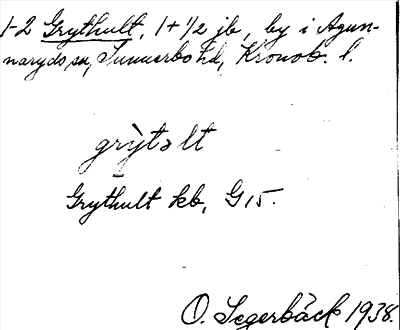 1-2 Grythult, 1+1/2 jb, by i Agun-
naryds sn, Sunnerbo hd, Kronob. l.
grỳtəlt
Grythult kb, G15.
O. Segerbäck 1938.